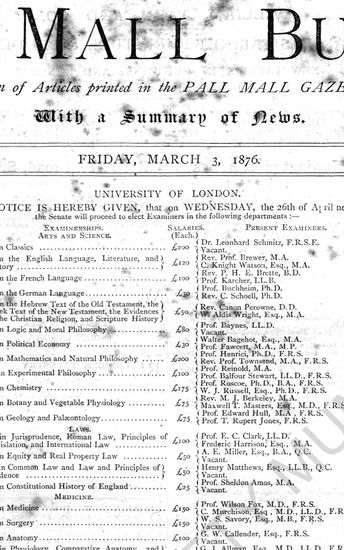 MALL BU
n of Articles printed in the PALL MALL GAZE
With a Summary of News.
FRIDAY, MARCH 3, 1876.
UNIVERSITY OF LONDON.
OTICE IS HEREBY GIVEN, that on WEDNESDAY, the 26th of April ne
the Senate will proceed to elect Examiners in the following departments :—
EXAMINERSHIPS. SALARIES. PRESENT EXAMINERS.
ARTS AND SCIENCE. (Each.)
n Classics £200 Dr. Leonhard Schmitz, F.R.S.E.
Vacant.
n the English Language, Literature, and £120 Rev. Prof. Brewer, M.A.
tory C. Knight Watson, Esq., M.A.
n the French Language £100 Rev. P. H. E. Brette, B.D.
Prof. Karcher, LL.B.
n the German Language Prof. Buchheim, Ph.D.
Rev. C. Schoell, Ph.D.
n the Hebrew Text of the Old Testament, the
ek Text of the New Testament, the Evidences £50 Rev. Canon Perowne, D.D.
the Christian Religion, and Scripture History W. Aldis Wright, Esq., M.A.
n Logic and Moral Philosophy £80 Prof. Baynes, LL.D.
Vacant.
n Political Economy £30 Walter Bagehot, Esq., M.A.
Prof. Fawcett, M.A., M.P.
n Mathematics and Natural Philosophy £200 Prof. Henrici, Ph.D., F.R.S.
Rev. Prof. Townsend, M.A., F.R.S.
n Experimental Philosophy £100 Prof. Reinold, M.A.
Prof. Balfour Stewart, LL.D., F.R.S.
n Chemistry £175 Prof. Roscoe, Ph.D., B.A., F.R.S.
W. J. Russell, Esq., Ph.D., F.R.S.
n Botany and Vegetable Physiology £75 Rev. M. J. Berkeley, M.A.
Maxwell T. Masters, Esq., M.D., F.R.S.
n Geology and Palæontology £75 Prof. Edward Hull, M.A., F.R.S.
Prof. T. Rupert Jones, F.R.S.
LAWS.
n Jurisprudence, Roman Law, Principles of £100 Prof. E. C. Clark, LL.D.
islation, and International Law Frederic Harrison, Esq., M.A.
n Equity and Real Property Law £50 A. E. Miller, Esq., B.A., Q.C.
Vacant.
n Common Law and Law and Principles of £50 Henry Matthews, Esq., LL.B., Q.C.
dence Vacant.
n Constitutional History of England £25 Prof. Sheldon Amos, M.A.
Vacant.
MEDICINE.
n Medicine £150 Prof. Wilson Fox, M.D., F.R.S.
C. Murchison, Esq., M.D., LL.D., F.R.S.
n Surgery £150 W. S. Savory, Esq., M.B., F.R.S.
Vacant.
n Anatomy £100 G. W. Callender, Esq., F.R.S.
Vacant.
n Physiology, Comparative Anatomy, and G. J. Allman, Esq., M.D., F.R.S.